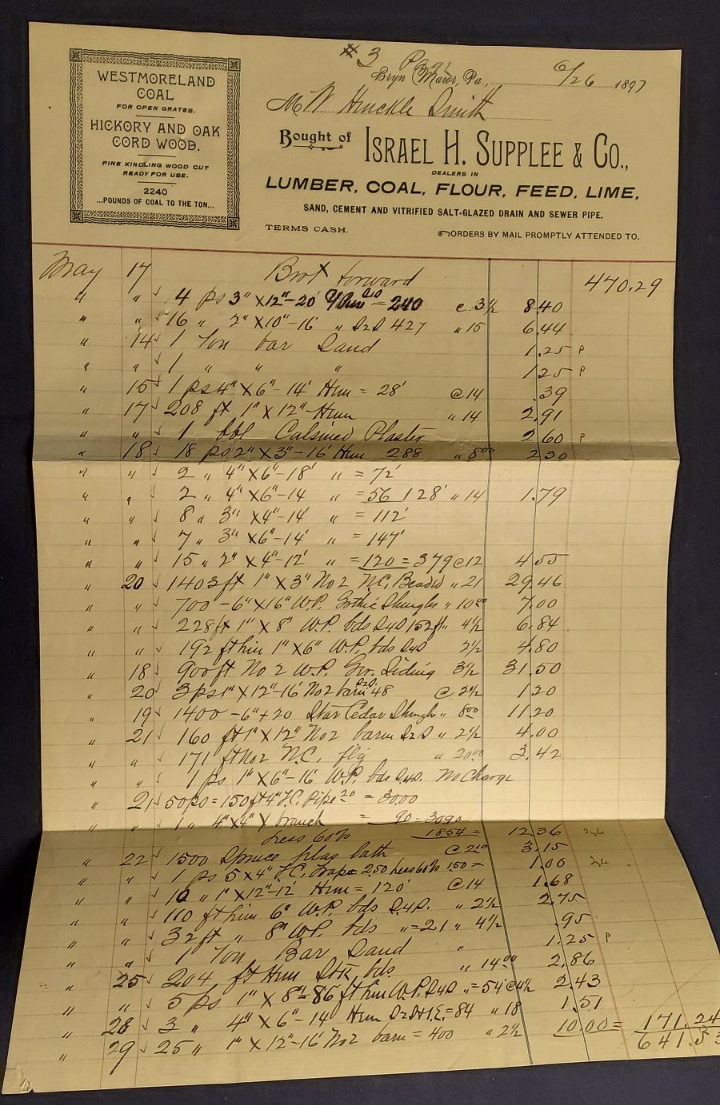 # 3
Bryn Mawr, Pa., 6/26 1897
M W Hinckle Smith
WESTMORELAND
COAL
FOR OPEN GRATES.
HICKORY AND OAK
CORD WOOD.
PINE KINDLING WOOD CUT
READY FOR USE.
2240
...POUNDS OF COAL TO THE TON...
Bought of ISRAEL H. SUPPLEE & CO.,
DEALERS IN
LUMBER, COAL, FLOUR, FEED, LIME,
SAND, CEMENT AND VITRIFIED SALT-GLAZED DRAIN AND SEWER PIPE.
TERMS CASH. ORDERS BY MAIL PROMPTLY ATTENDED TO.
May 17 Brot forward 470.29
" " 4 ps 3" X 12"-20' = 240 c 3½ 8.40
" " 16 " 2" X 10"-16' " D2S 427 " 15 6.44
" 14 1 Ton bar Sand 1.25 P
" " 1 " " " 1.25 P
" 15 1 ps 4" X 6"-14' Hem = 28' @ 14 .39
" 17 208 ft 1" X 12" Hem " 14 2.91
" " 1 bbl Calsined Plaster 2.60 P
" 18 18 ps 2" X 3"-16' Hem 288 " 8.00 2.30
" " 2 " 4" X 6"-18' " = 72'
" " 2 " 4" X 6"-14 " = 56 128' " 14 1.79
" " 8 " 3" X 4"-14' " = 112'
" " 7 " 3" X 6"-14' " = 147'
" " 15 " 2" X 4"-12' " = 120 = 379 @ 12 4.55
" 20 1403 ft 1" X 3" No 2 N.C. Beaded " 21 29.46
" " 700 - 6" X 16" W.P. Gothic Shingls " 10.00 7.00
" " 228 ft 1" X 8" W.P. bds D4S 152 ft 4½ 6.84
" " 192 ft hin 1" X 6" W.P. bds D4S 2½ 4.80
" 18 900 ft No 2 W.P. Ger. Siding 3½ 31.50
" 20 3 ps 1" X 12"-16' No 2 barn D2S. 48 @ 2½ 1.20
" 19 1400 - 6" + 20 Star Cedar Shingls " 8.00 11.20
" 21 160 ft 1" X 12" No 2 barn D2S " 2½ 4.00
" " 171 ft No 2 N.C. flg " 20.00 3.42
" " 1 ps 1" X 6"-16 W.P. bds D4S. No Charge
" 21 50 ps = 150 ft 4" T.C. Pipe 20 = 3000
" " 1 " 4" X 4" Y branch 90 = 3090
Less 60% 1854 = 12.36
" 22 1500 Spruce plas lath @ 2.10 3.15
" " 1 ps 5 X 4" T.C. Trap = 2.50 Less 60% 1.50 - 1.00
" " 10 " 1" X 12"-12' Hem = 120' @ 14 1.68
" " 110 ft hin 6" W.P. bds D4S. " 2½ 2.75
" " 32 ft " 8" W.P. bds " = 21 " 4½ .95
" " 1 Ton Bar Sand " 1.25 P
" 25 204 ft Hem bds " 14.00 2.86
" " 5 ps 1" X 8"-86 ft hin W.P. D4S " = 54 @ 4½ 2.43
" 28 3 " 4" X 6"-14' Hem D2S+1E = 84 " 18 1.51
" 29 25 " 1" X 12"-16' No 2 barn = 400 " 2½ 10.00 = 171.24
641.53